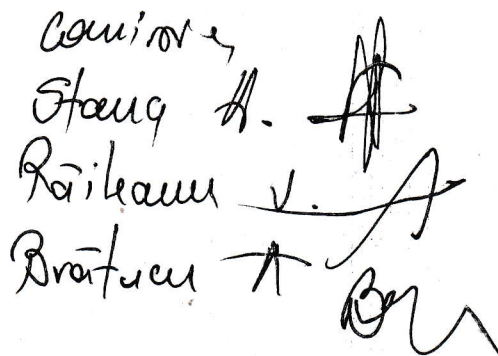 Comisia,
Stang A.
Răileanu V.
Brătucu A